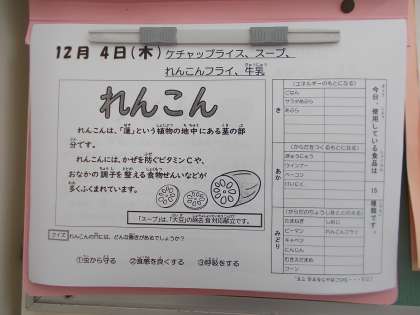 12月 4日(木) ケチャップライス、スープ、
れんこんフライ、牛乳
れんこん
れんこんは、「蓮」という植物の地中にある茎の部
分です。
れんこんには、かぜを防ぐビタミンCや、
おなかの調子を整える食物せんいなどが
多くふくまれています。
クイズ れんこんの穴には、どんな働きがあるでしょうか？
①虫から守る ②食感を良くする ③呼吸をする
今日、使用している食品は 15 種類です。
(エネルギーのもとになる)
き
ごはん
サラダあぶら
あぶら
(からだをつくるもとになる)
あか
ぎゅうにゅう
ウインナー
ベーコン
(からだのちょうしをととのえる)
みどり
たまねぎ
しめじ
ピーマン
れんこんフライ
キャベツ
にんじん
むきえだまめ
コーン